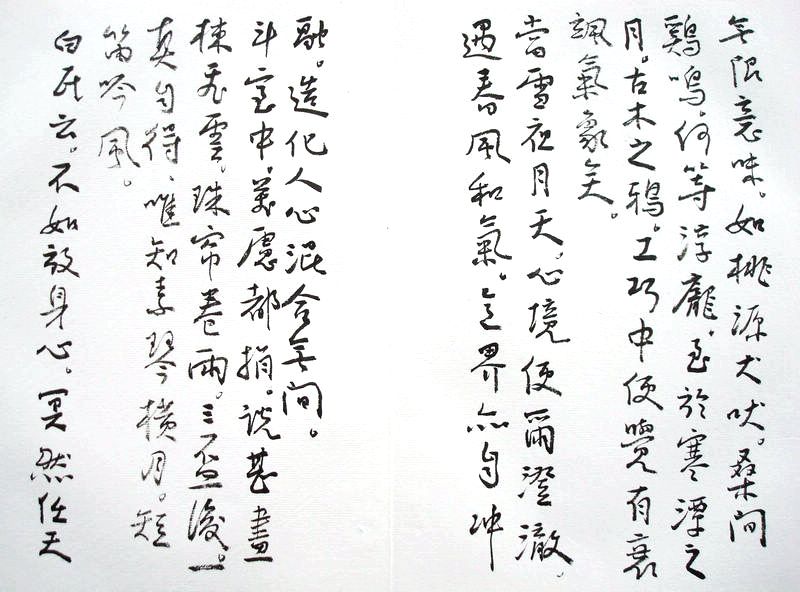 無限意味。如桃源犬吠。桑間
鷄鳴。何等淳龐。至於寒潭之
月。古木之鴉。工巧中便覺有衰
颯氣象矣。
當雪夜月天。心境便爾澄澈。
遇春風和氣。意界亦自沖
融。造化人心混合無間。
斗室中。萬慮都捐。說甚畫
棟飛雲。珠帘卷雨。三盃後。一
真自得、唯知素琴橫月。短
笛吟風。
白氏云。不如放身心。冥然任天